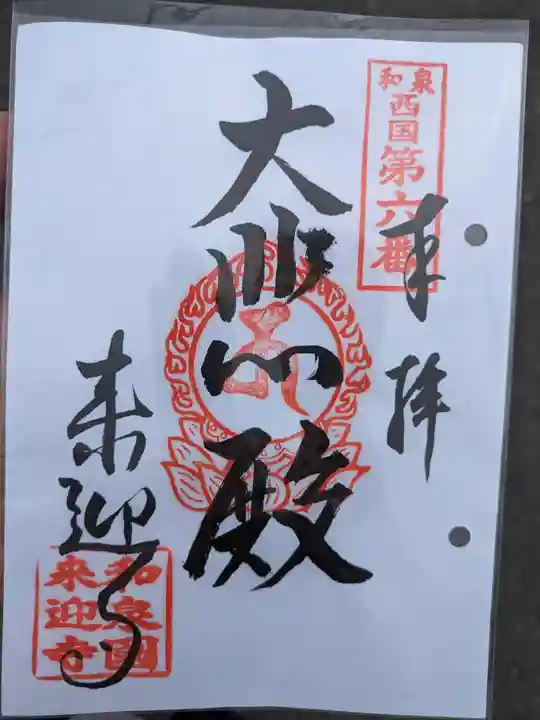 和泉
西国
第六番
奉拝
大悲殿
来迎寺
和泉國
来迎寺